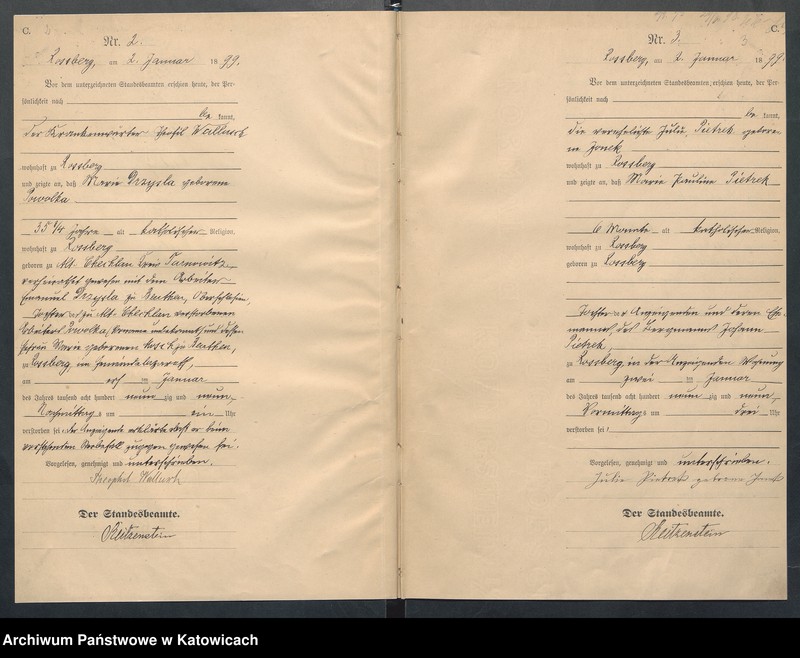 C.
Nr. 2.
Rossberg, am 2. Januar 1899.
Vor dem unterzeichneten Standesbeamten erschien heute, der Per-
sönlichkeit nach
be kannt,
der Krankenwärter Theofil Wallusch
wohnhaft zu Rossberg
und zeigte an, daß Marie Drzysla geborene
35 1/4 Jahre alt katholischer Religion,
wohnhaft zu Rossberg
geboren zu Alt-Chechlau Kreis Tarnowitz
verheirathet gewesen mit dem Arbeiter
Emanuel Drzysla zu Beuthen, Oberschlesien,
Tochter des zu Alt-Chechlau verstorbenen
Arbeiters
Marie geborenen zu Beuthen,
zu Rossberg, im
am ersten Januar
des Jahres tausend acht hundert neun zig und neun,
Nachmittags um ein Uhr
verstorben sei, der Anzeigende erklärte daß er beim
Sterbefall zugegen gewesen sei.
Vorgelesen, genehmigt und unterschrieben.
Theophil Wallusch
Der Standesbeamte.
Reitzenstein
C.
Nr. 3.
Rossberg, am 2. Januar 1899.
Vor dem unterzeichneten Standesbeamten erschien heute, der Per-
sönlichkeit nach
be kannt,
die verehelichte Julie Pietrek gebore-
ne Jonek
wohnhaft zu Rossberg
und zeigte an, daß Marie Pauline Pietrek
6 Monate alt katholischer Religion,
wohnhaft zu Rossberg
geboren zu Rossberg
Tochter der Anzeigenden und deren Ehe-
mannes, des Bergmanns Johann
Pietrek,
zu Rossberg, in der Anzeigenden Wohnung
am zwei ten Januar
des Jahres tausend acht hundert neun zig und neun,
Vormittags um drei Uhr
verstorben sei,
Vorgelesen, genehmigt und unterschrieben.
Julie Pietrek geborene Jonek
Der Standesbeamte.
Reitzenstein
Archiwum Państwowe w Katowicach